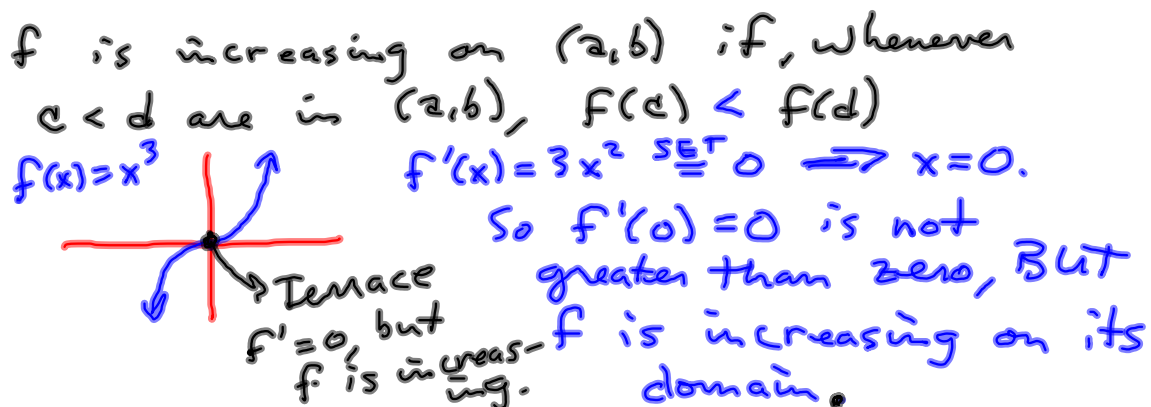 f is increasing on (a,b) if, whenever
c < d are in (a,b), f(c) < f(d)
f(x)=x³
f'(x) = 3x² SET = 0 ⟹ x=0.
So f'(0)=0 is not
greater than zero, BUT
f is increasing on its
domain.
Terrace
f'=0, but
f is increas-
ing.